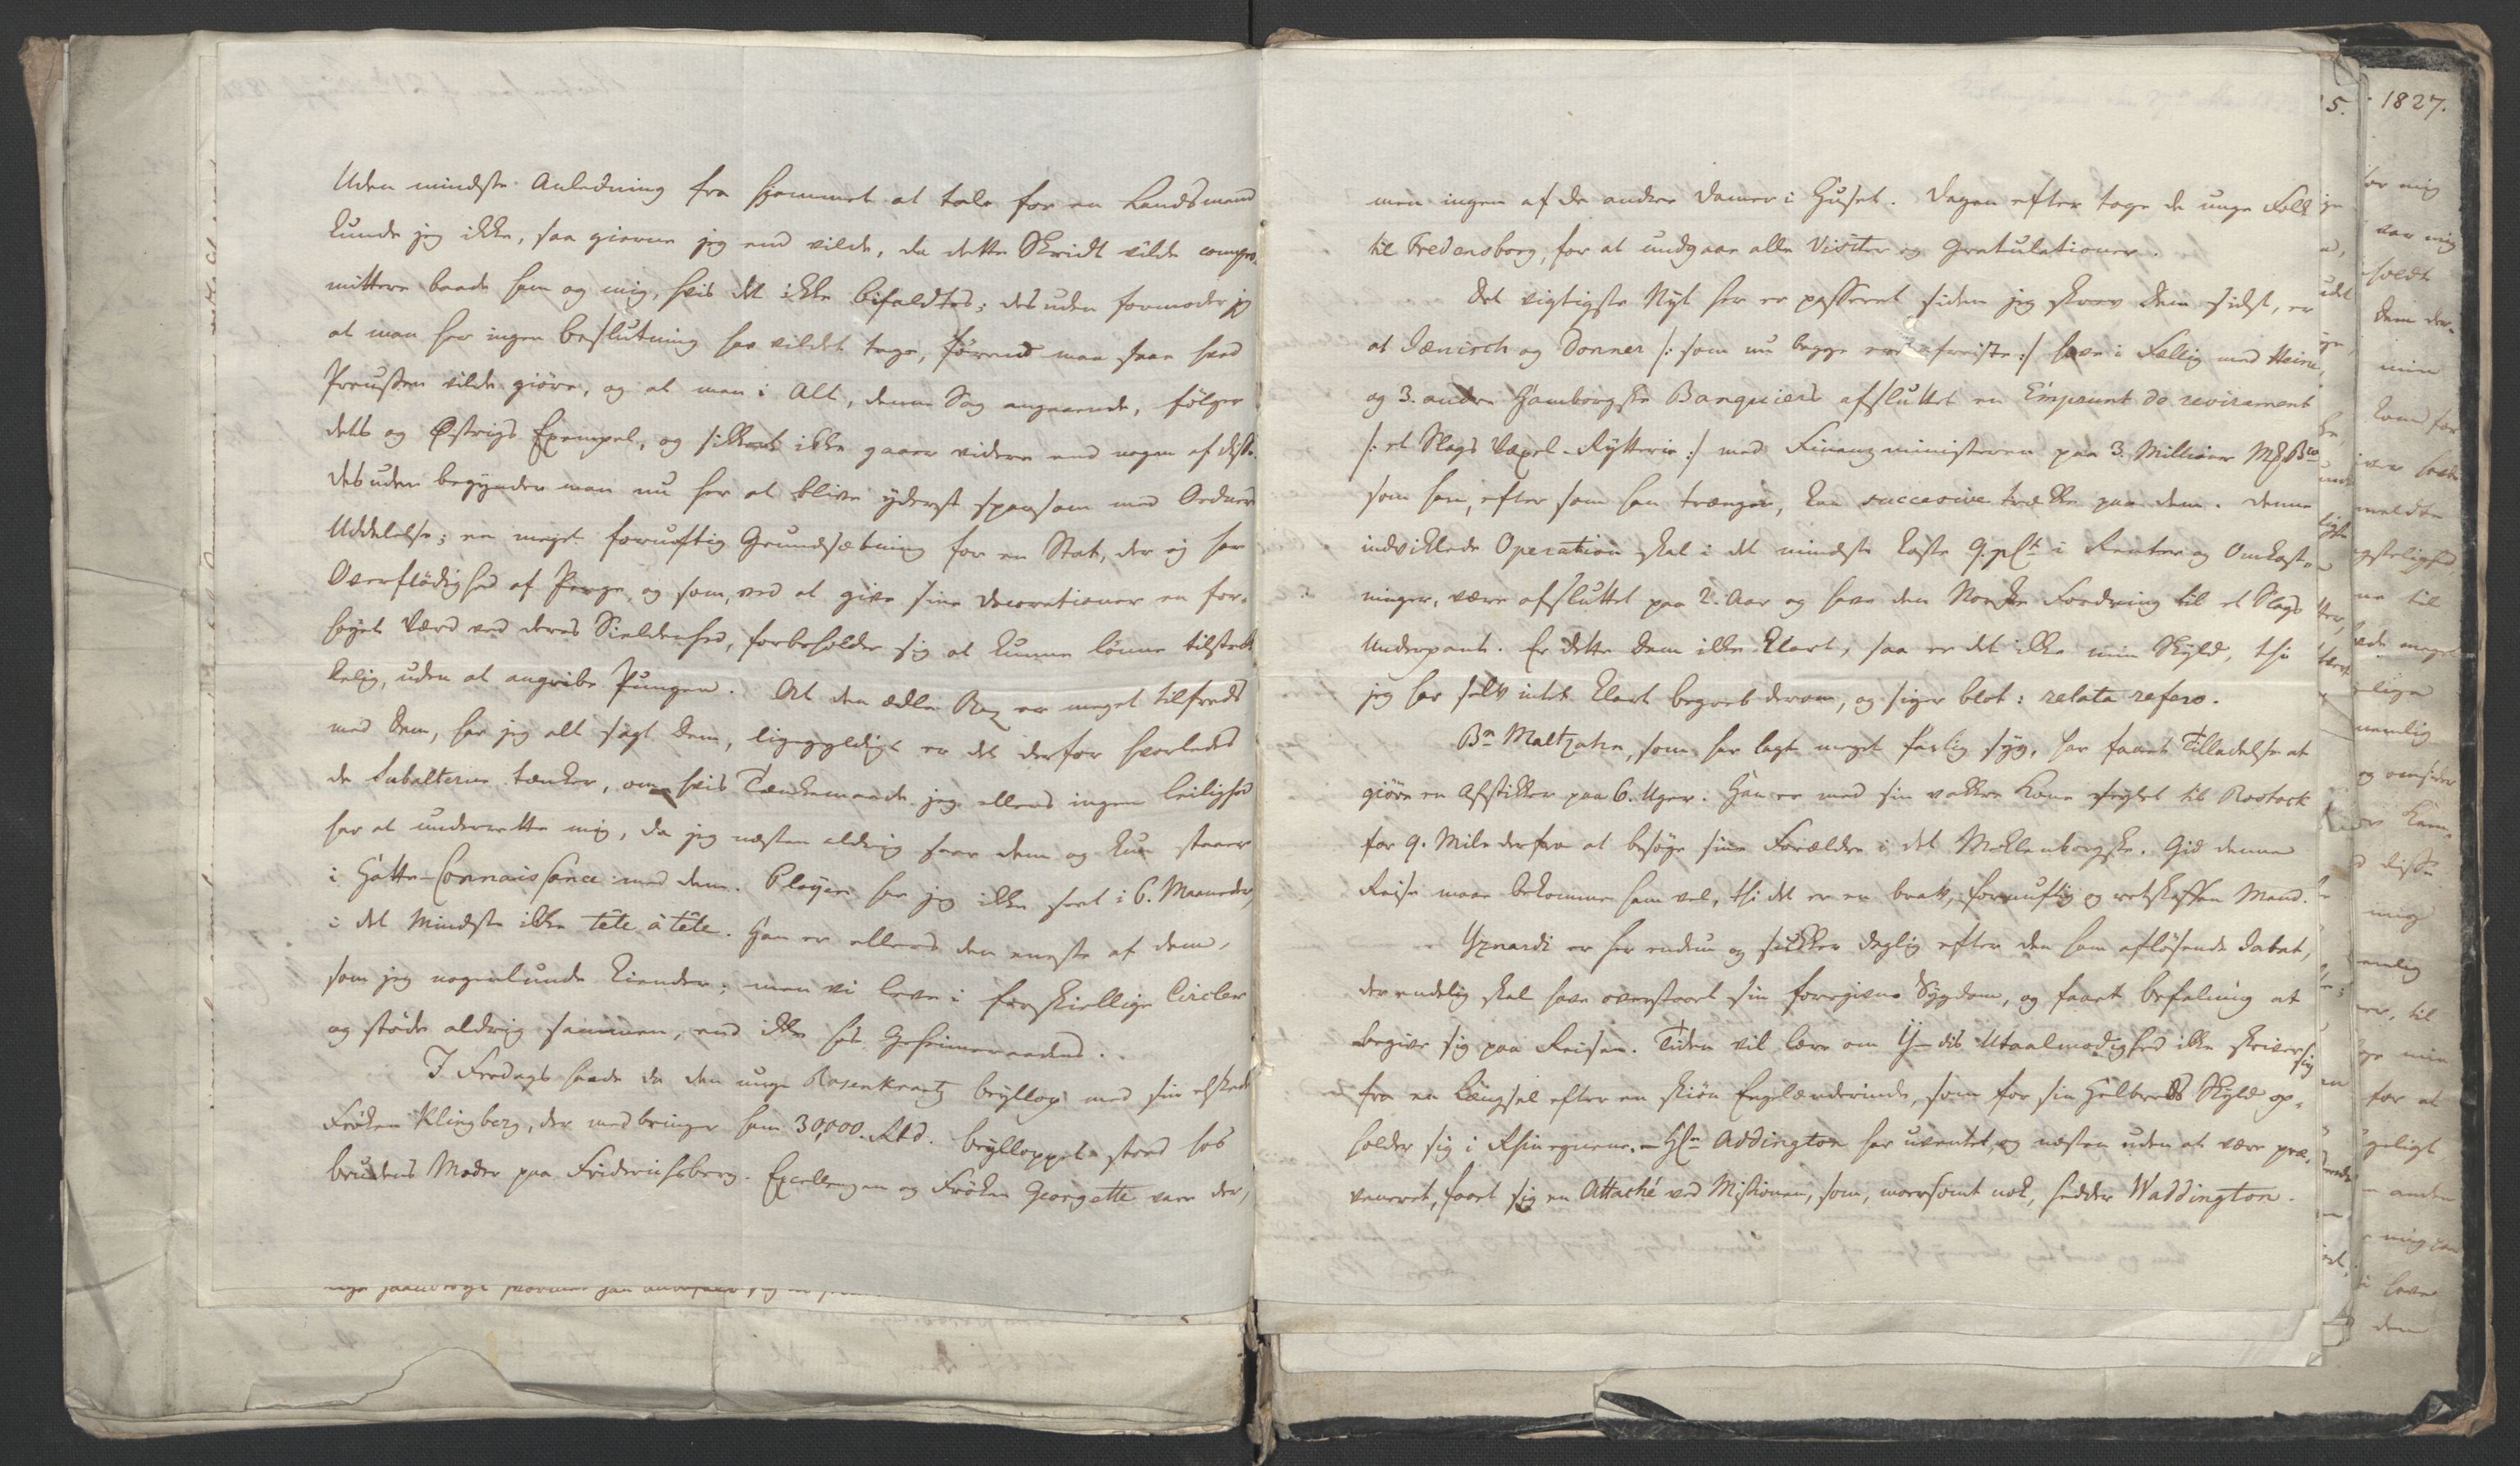 Uden mindste Anledning fra Hjemmet at tale for en Landsmand
kunde jeg ikke, saa gierne jeg end vilde, da dette Skridt vilde compro-
mittere baade ham og mig, hvis det ikke bifaldtes; desuden formoder jeg
at man her ingen Beslutning har villet tage, förend man saae hvad
Preussen vilde giöre, og at man i Alt, denne Sag angaaende, fölger
dets og Østrigs Exempel, og sikkert ikke gaaer videre end nogen af disse.
Desuden begynder man nu her at blive yderst sparsom med Ordners
Uddelelse; en meget fornuftig Grundsætning for en Stat, der ej har
Overflödighed af Penge, og som, ved at give sine Decorationer en for-
høyet Værd ved deres Sieldenhed, forbeholder sig at kunne lönne tilstræk
kelig, uden at angribe Pungen. At den ædle Rex er meget tilfreds
med Dem, har jeg alt sagt Dem, ligegyldigt er det derfor hvorledes
de Subalterne tænker, om hvis Tænkemaade jeg ellers ingen Leilighed
har at underrette mig, da jeg næsten aldrig seer dem og kun staaer
i Hatte-Connaissance med dem. Ployen har jeg ikke seet i 6. Maaneder,
i det Mindste ikke tête à tête. Han er ellers den eneste af dem,
som jeg nogenlunde kiender; men vi leve i forskiellige Circler
og støde aldrig sammen, end ikke hos Geheimeraaden.
I Fredags havde da den unge Rosenkrantz bryllop med sin elskede
Fröken Klingberg, der medbringer ham 30,000. Rbd. brylloppet stod hos
brudens Moder paa Friderichsberg. Excellenzen og Fröken Georgette vare der,
men ingen af de andre Damer i Huset. Dagen efter toge de unge Folk
til Fredensborg, for at undgaae alle Visiter og Gratulationer.
Det vigtigste Nyt her er passeret siden jeg skrev Dem sidst, er
at Jænisch og Donner /: som nu begge ere afreiste :/ have i Fællig med Heine,
og 3. andre Hamborgske Banquiers afsluttet en Emprunt de revirement
/: et Slags Vexel-Rytterie :/ med Finanzministeren paa 3. Millioner Mk Bco
som han, efter som han trænger, kan succesive trække paa dem. Denne
indviklede Operation skal i det mindste koste 9. pCt i Renter og Omkost-
ninger, være afsluttet paa 2. Aar og have den Norske Fordring til et Slags
Underpant. Er dette Dem ikke klart, saa er det ikke min Skyld, thi
jeg har selv intet klart begreb derom, og siger blot: relata refero.
Bn Maltzahn, som har lagt meget farlig syg, har faaet Tilladelse at
giöre en Afstikker paa 6. Uger. Han er med sin vakkre Kone seylet til Rostock
for 9. Mile derfra at besöge sine Forældre i det Meklenborgske. Gid denne
Reise maae bekomme ham vel, thi det er en brav, fornuftig og retskaffen Mand.
Yznardi er her endnu og sukker daglig efter den ham aflösende Dabat,
der endelig skal have overstaaet sin foregivne Sygdom, og faaet befaling at
begive sig paa Reisen. Tiden vil lære om Y-dis Utaalmodighed ikke skriver sig
fra en Længsel efter en skiön Engelænderinde, som for sin Helbreds Skyld op-
holder sig i Rhinegnene. – Hr Addington har uventet, og næsten uden at være præ-
veneret, faaet sig en Attaché ved Missionen, som, morsomt nok, hedder Waddington.
5.
1827.